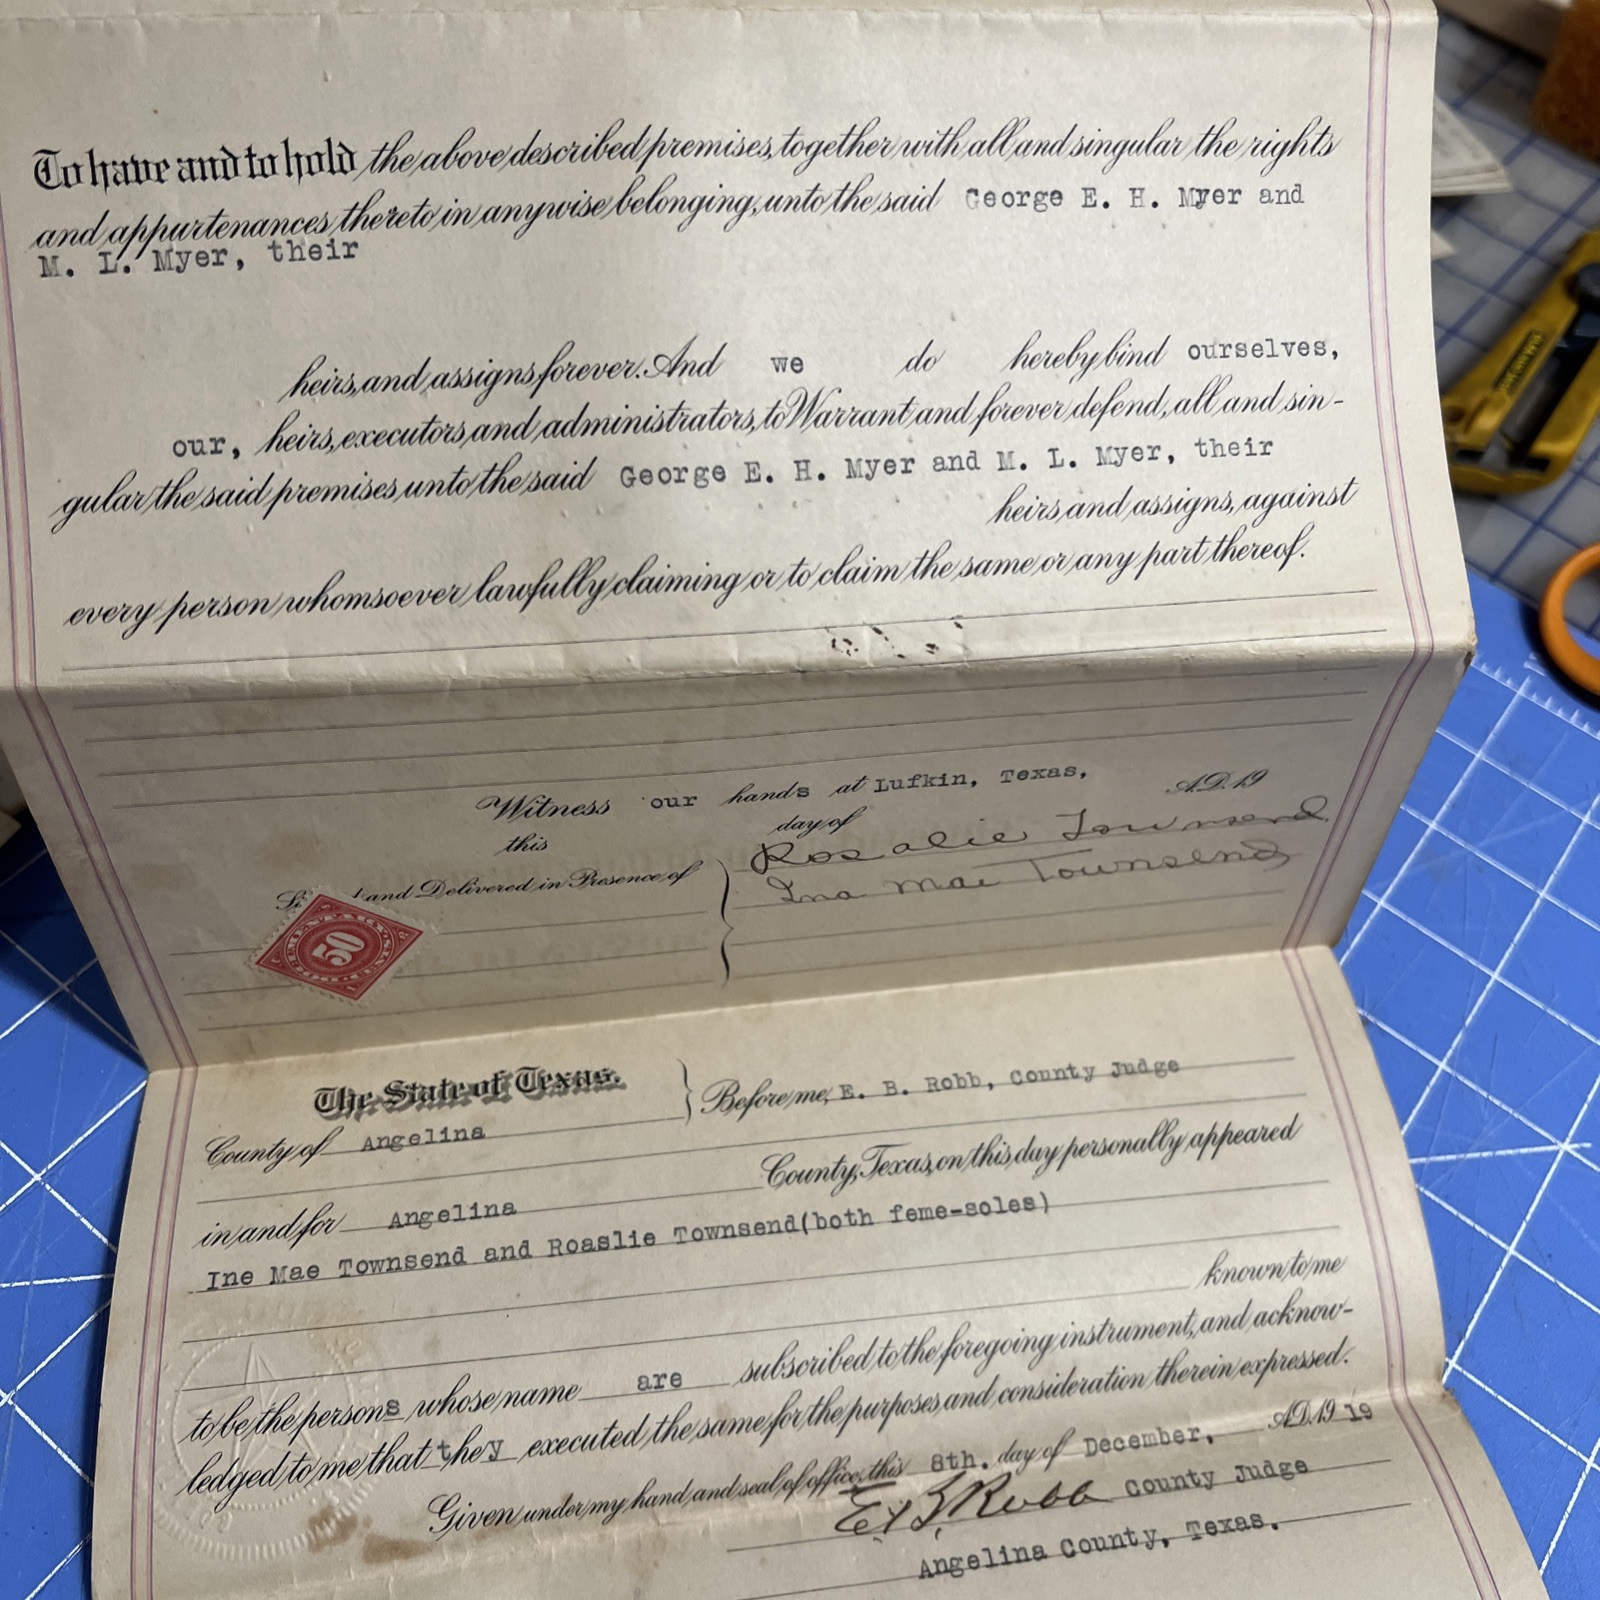 To have and to hold the above described premises, together with all and singular the rights
and appurtenances thereto in anywise belonging, unto the said George E. H. Myer and
M. L. Myer, their
heirs, and assigns forever. And we do hereby bind ourselves,
our, heirs, executors, and administrators, to Warrant and forever defend, all and sin-
gular the said premises, unto the said George E. H. Myer and M. L. Myer, their
heirs, and assigns, against
every person whomsoever lawfully claiming or to claim the same or any part thereof.
Witness our hands at Lufkin, Texas,
this day of A.D. 19
Rosalie Townsend
Si and Delivered in Presence of
Ina Mae Townsend
DOCUMENTARY
50
The State of Texas.
County of Angelina
Before me, E. B. Robb, County Judge
in and for Angelina County, Texas, on this day personally appeared
Ine Mae Townsend and Roaslie Townsend(both feme-soles)
known to me
to be the persons whose name are subscribed to the foregoing instrument, and acknow-
ledged to me that they executed the same for the purposes and consideration therein expressed.
Given under my hand and seal of office, this 8th. day of December, A.D. 19 19
E. B. Robb County Judge
Angelina County, Texas.